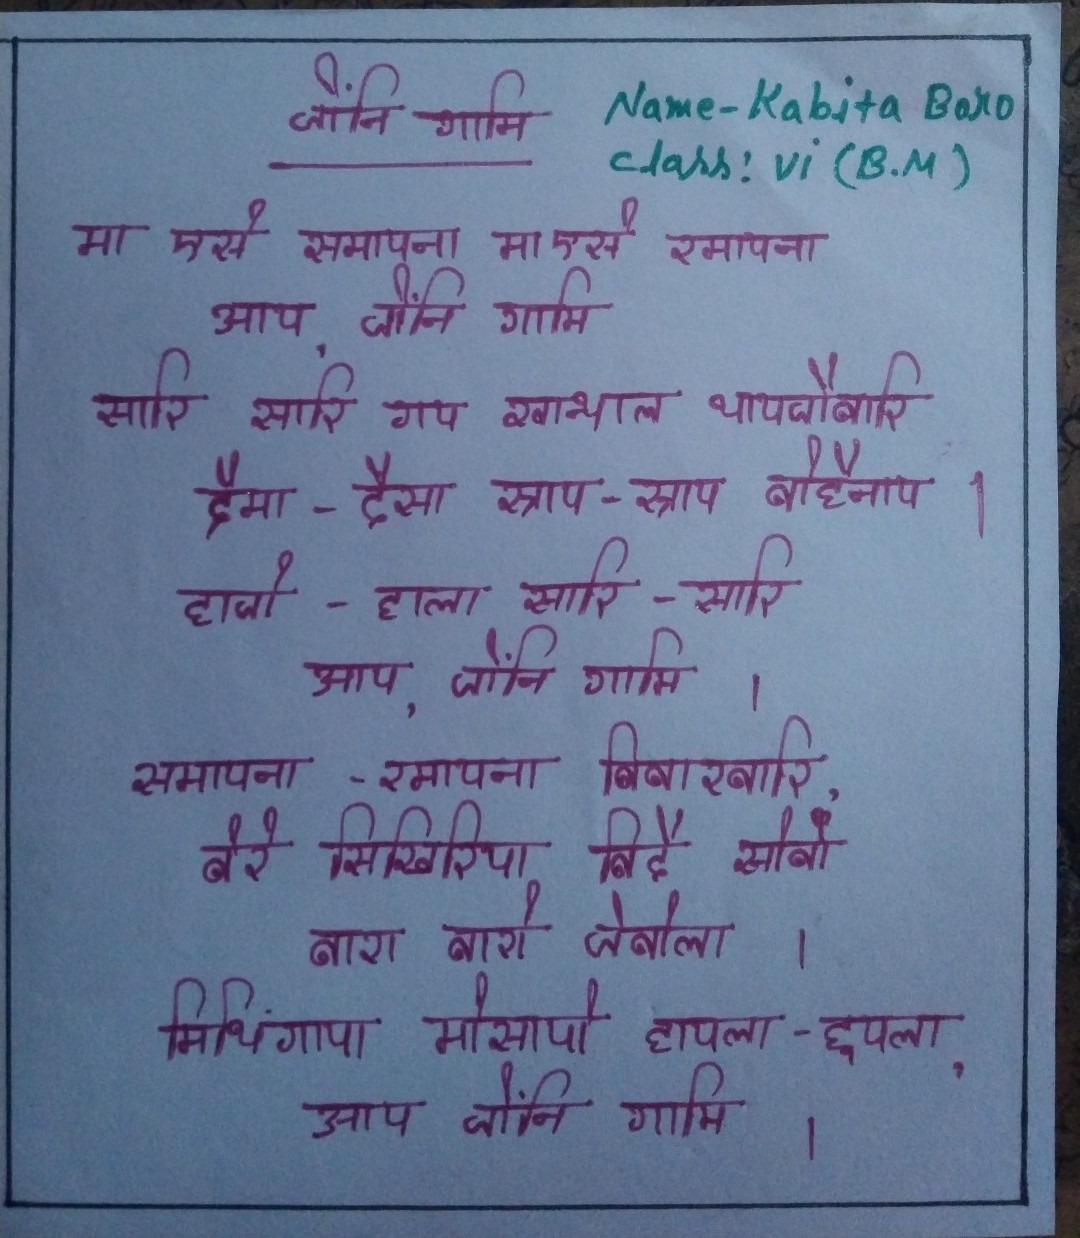 जोंनि गामि
Name-Kabita Boro
Class: vi (B.M)
मा एसे समायना मा एसे रमायना
आय, जोंनि गामि
सारि सारि गय खान्थाल थायजौबारि
दैमा - दैसा स्राय-स्राय बोहैनाय ।
हाजो - हाला सारि - सारि
आय, जोंनि गामि ।
समायना - रमायना बिबारबारि,
बेरे सिखिरिया, बिदै सोबो
बारा बारो जेबोला ।
मिथिंगाया मोसायो हायला - हुयला,
आय जोंनि गामि ।